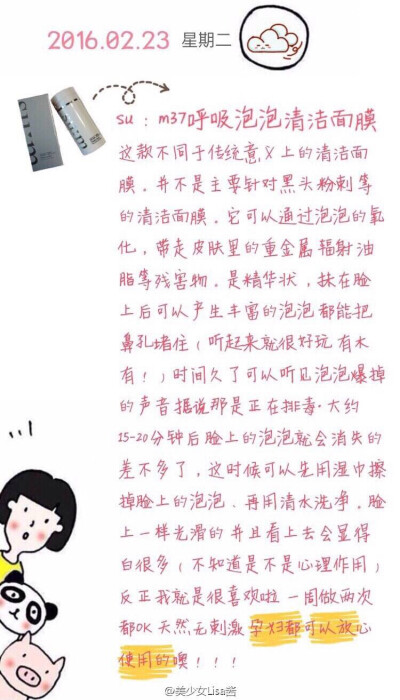 2016.02.23 星期二
su:m37呼吸泡泡清洁面膜
这款不同于传统意义上的清洁面
膜.并不是主要针对黑头粉刺等
的清洁面膜.它可以通过泡泡的氧
化,带走皮肤里的重金属辐射油
脂等残害物.是精华状,抹在脸
上后可以产生丰富的泡泡都能把
鼻孔堵住(听起来就很好玩有木
有!)时间久了可以听见泡泡爆掉
的声音据说那是正在排毒.大约
15-20分钟后脸上的泡泡就会消失的
差不多了,这时候可以先用湿巾擦
掉脸上的泡泡、再用清水洗净.脸
上一样光滑的并且看上去会显得
白很多(不知道是不是心理作用)
反正我就是很喜欢啦 一周做两次
都OK 天然无刺激 孕妇都可以放心
使用的噢!!!
su:m37
@美少女Lisa酱